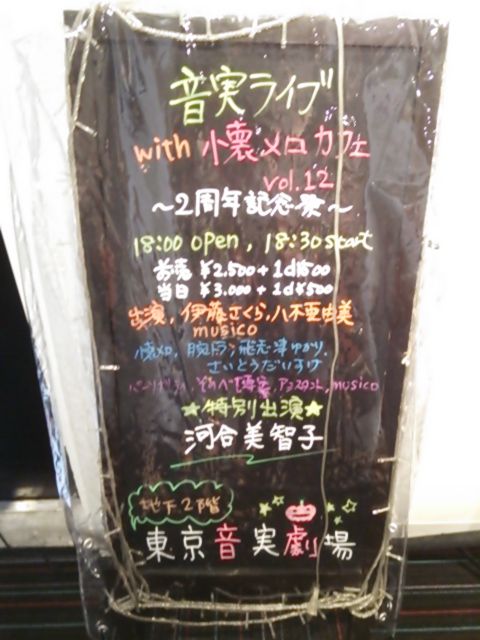 音実ライブ
with 懐メロカフェ
vol.12
～2周年記念祭～
18:00 open, 18:30 start
前売 ¥2,500+1d¥500
当日 ¥3,000+1d¥500
出演, 伊藤さくら, 八木亜由美
musico
懐メロ, 飛志津ゆかり,
さいとうだいすけ
アシスタント, musico
★特別出演★
河合美智子
地下2階
東京音実劇場